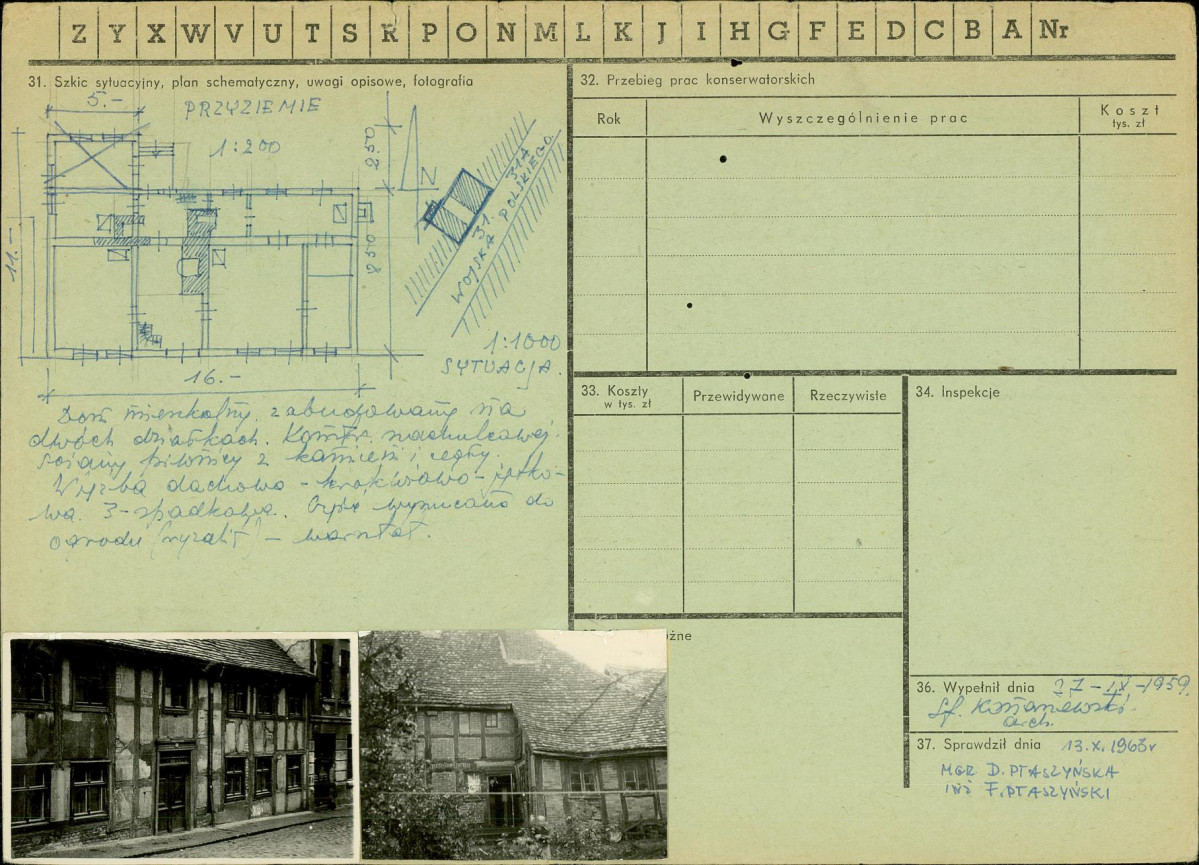 Z Y X W V U T S R P O N M L K J I H G F E D C B A Nr
31. Szkic sytuacyjny, plan schematyczny, uwagi opisowe, fotografia
5.-
PRZYZIEMIE
1:200
11.-
16.-
N
31
31A
WOJSKA POLSKIEGO
1:1000
SYTUACJA.
Dom mieszkalny zabudowany na
dwóch działkach. Konstr. szachulcowa.
Ściany piwnicy z kamieni i cegły.
Więźba dachowa - krokwiowo - jętko-
wa. 3-spadkowa. Część wysunięta do
ogrodu (ryzalit) - warsztat.
32. Przebieg prac konserwatorskich
Rok
Wyszczególnienie prac
Koszt
tys. zł
33. Koszty
w tys. zł
Przewidywane
Rzeczywiste
34. Inspekcje
żne
36. Wypełnił dnia 27-IX-1959.
arch.
37. Sprawdził dnia 13.X.1963r
MGR D. PTASZYŃSKA
INŻ F. PTASZYŃSKI